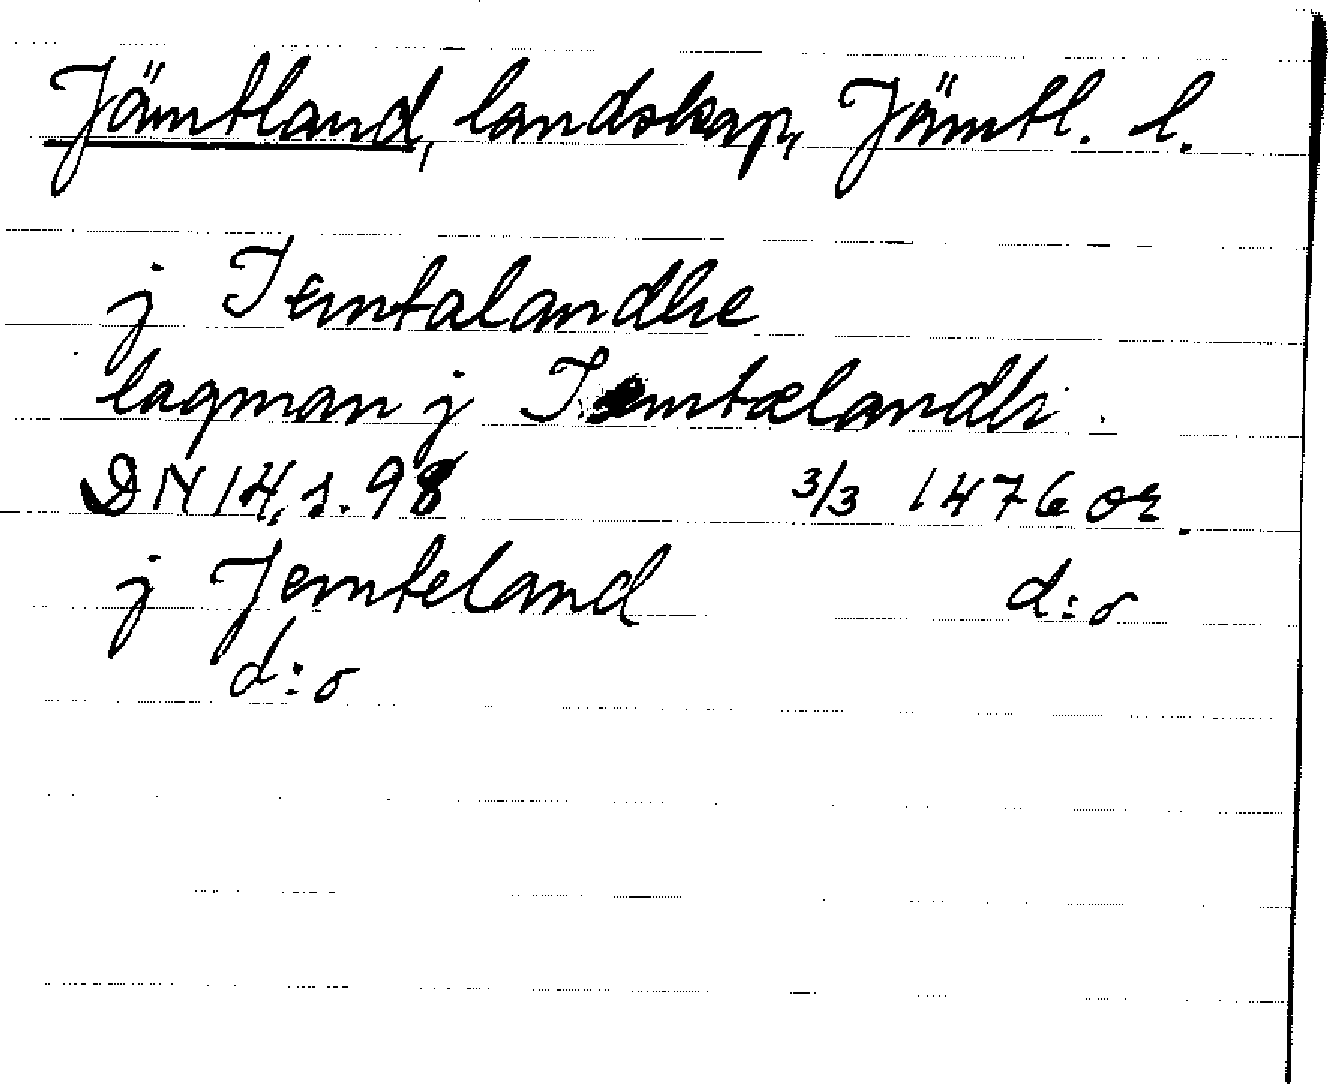 Jämtland, landskap, Jämtl. l.
j Iemtalandhe
lagman j Iemtælandhi
DN 14, s. 98 3/3 1476 or.
j Jemteland d:o
d:o